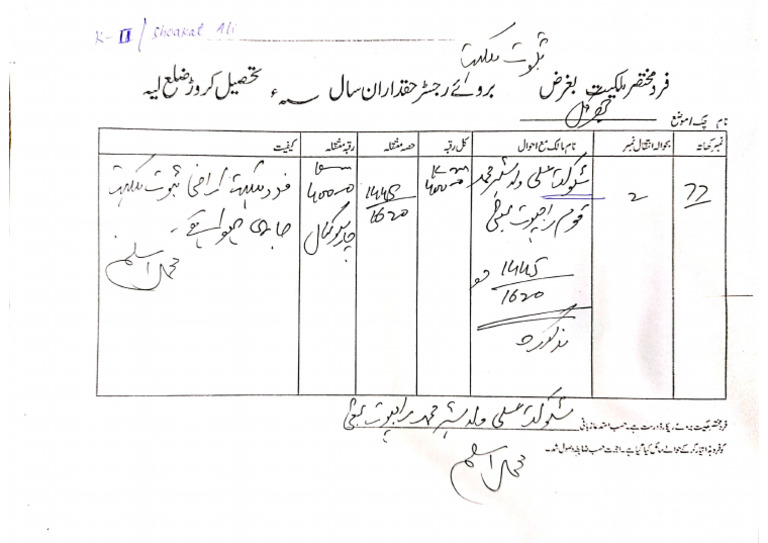 K-II / Shoakat Ali
ثبوت ملکیت
فرد مختصر ملکیت بغرض بروئے رجسٹر حقداران سال ء تحصیل کروڑ ضلع لیہ
نام چک / موضع
نمبر کھاتہ بحوالہ انتقال نمبر نام مالک مع احوال کل رقبہ حصہ منتقلہ رقبہ منتقلہ کیفیت
77 2 شوکت علی ولد شیر محمد
قوم راجپوت بھٹی
1445
1620
مذکورہ
400-0
1445
1620
400-0
چار سو کنال
فرد ملکیت اراضی ثبوت ملکیت
جاری
محمد اسلم
شوکت علی ولد شیر محمد راجپوت بھٹی
فرد مختصر ملکیت بروئے ریکارڈ درست ہے۔ حسب استدعا زبانی
کو فرد ہذا تیار کر کے حوالے سائل کیا گیا ہے۔ اجرت حسب ضابطہ وصول شد۔
محمد اسلم